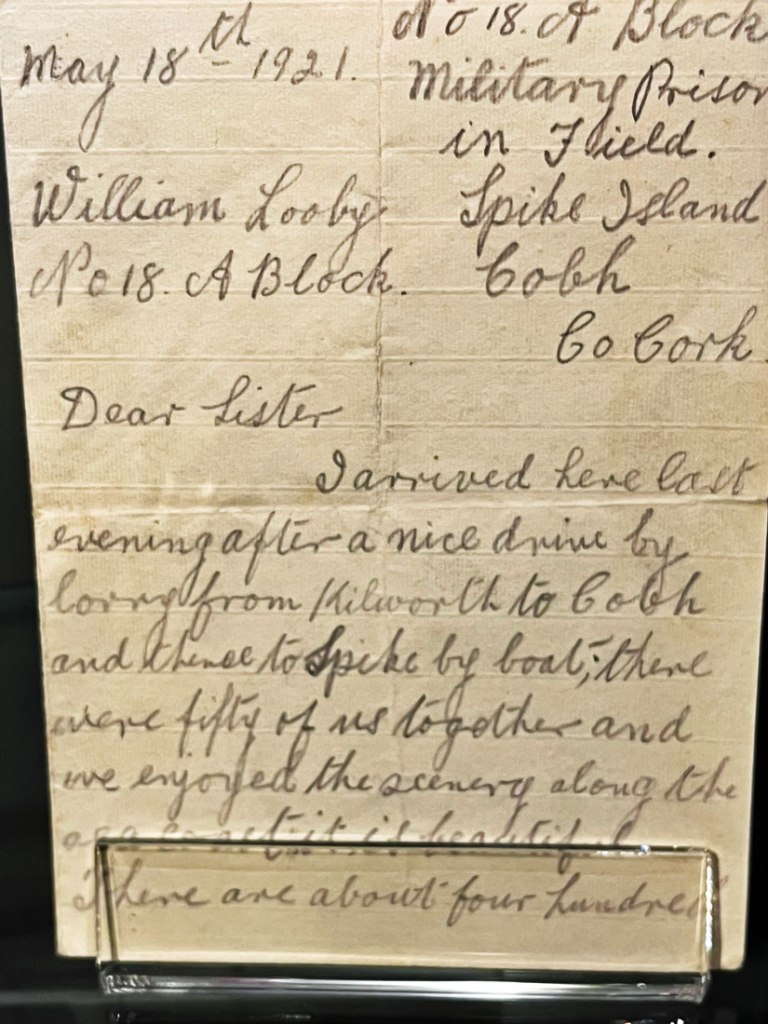 May 18th 1921.
No 18. A Block
Military Prison
in Field.
William Looby
No 18. A Block.
Spike Island
Cobh
Co Cork
Dear Sister
I arrived here last
evening after a nice drive by
lorry from Kilworth to Cobh
and thence to Spike by boat; there
were fifty of us together and
we enjoyed the scenery along the
sea coast it is beautiful
There are about four hundred